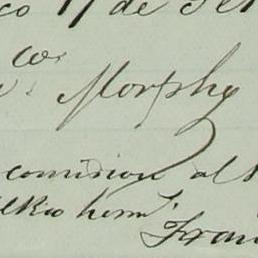 co 17 de Se
Co.
Morphy
comision al
lkio herm.
Fran